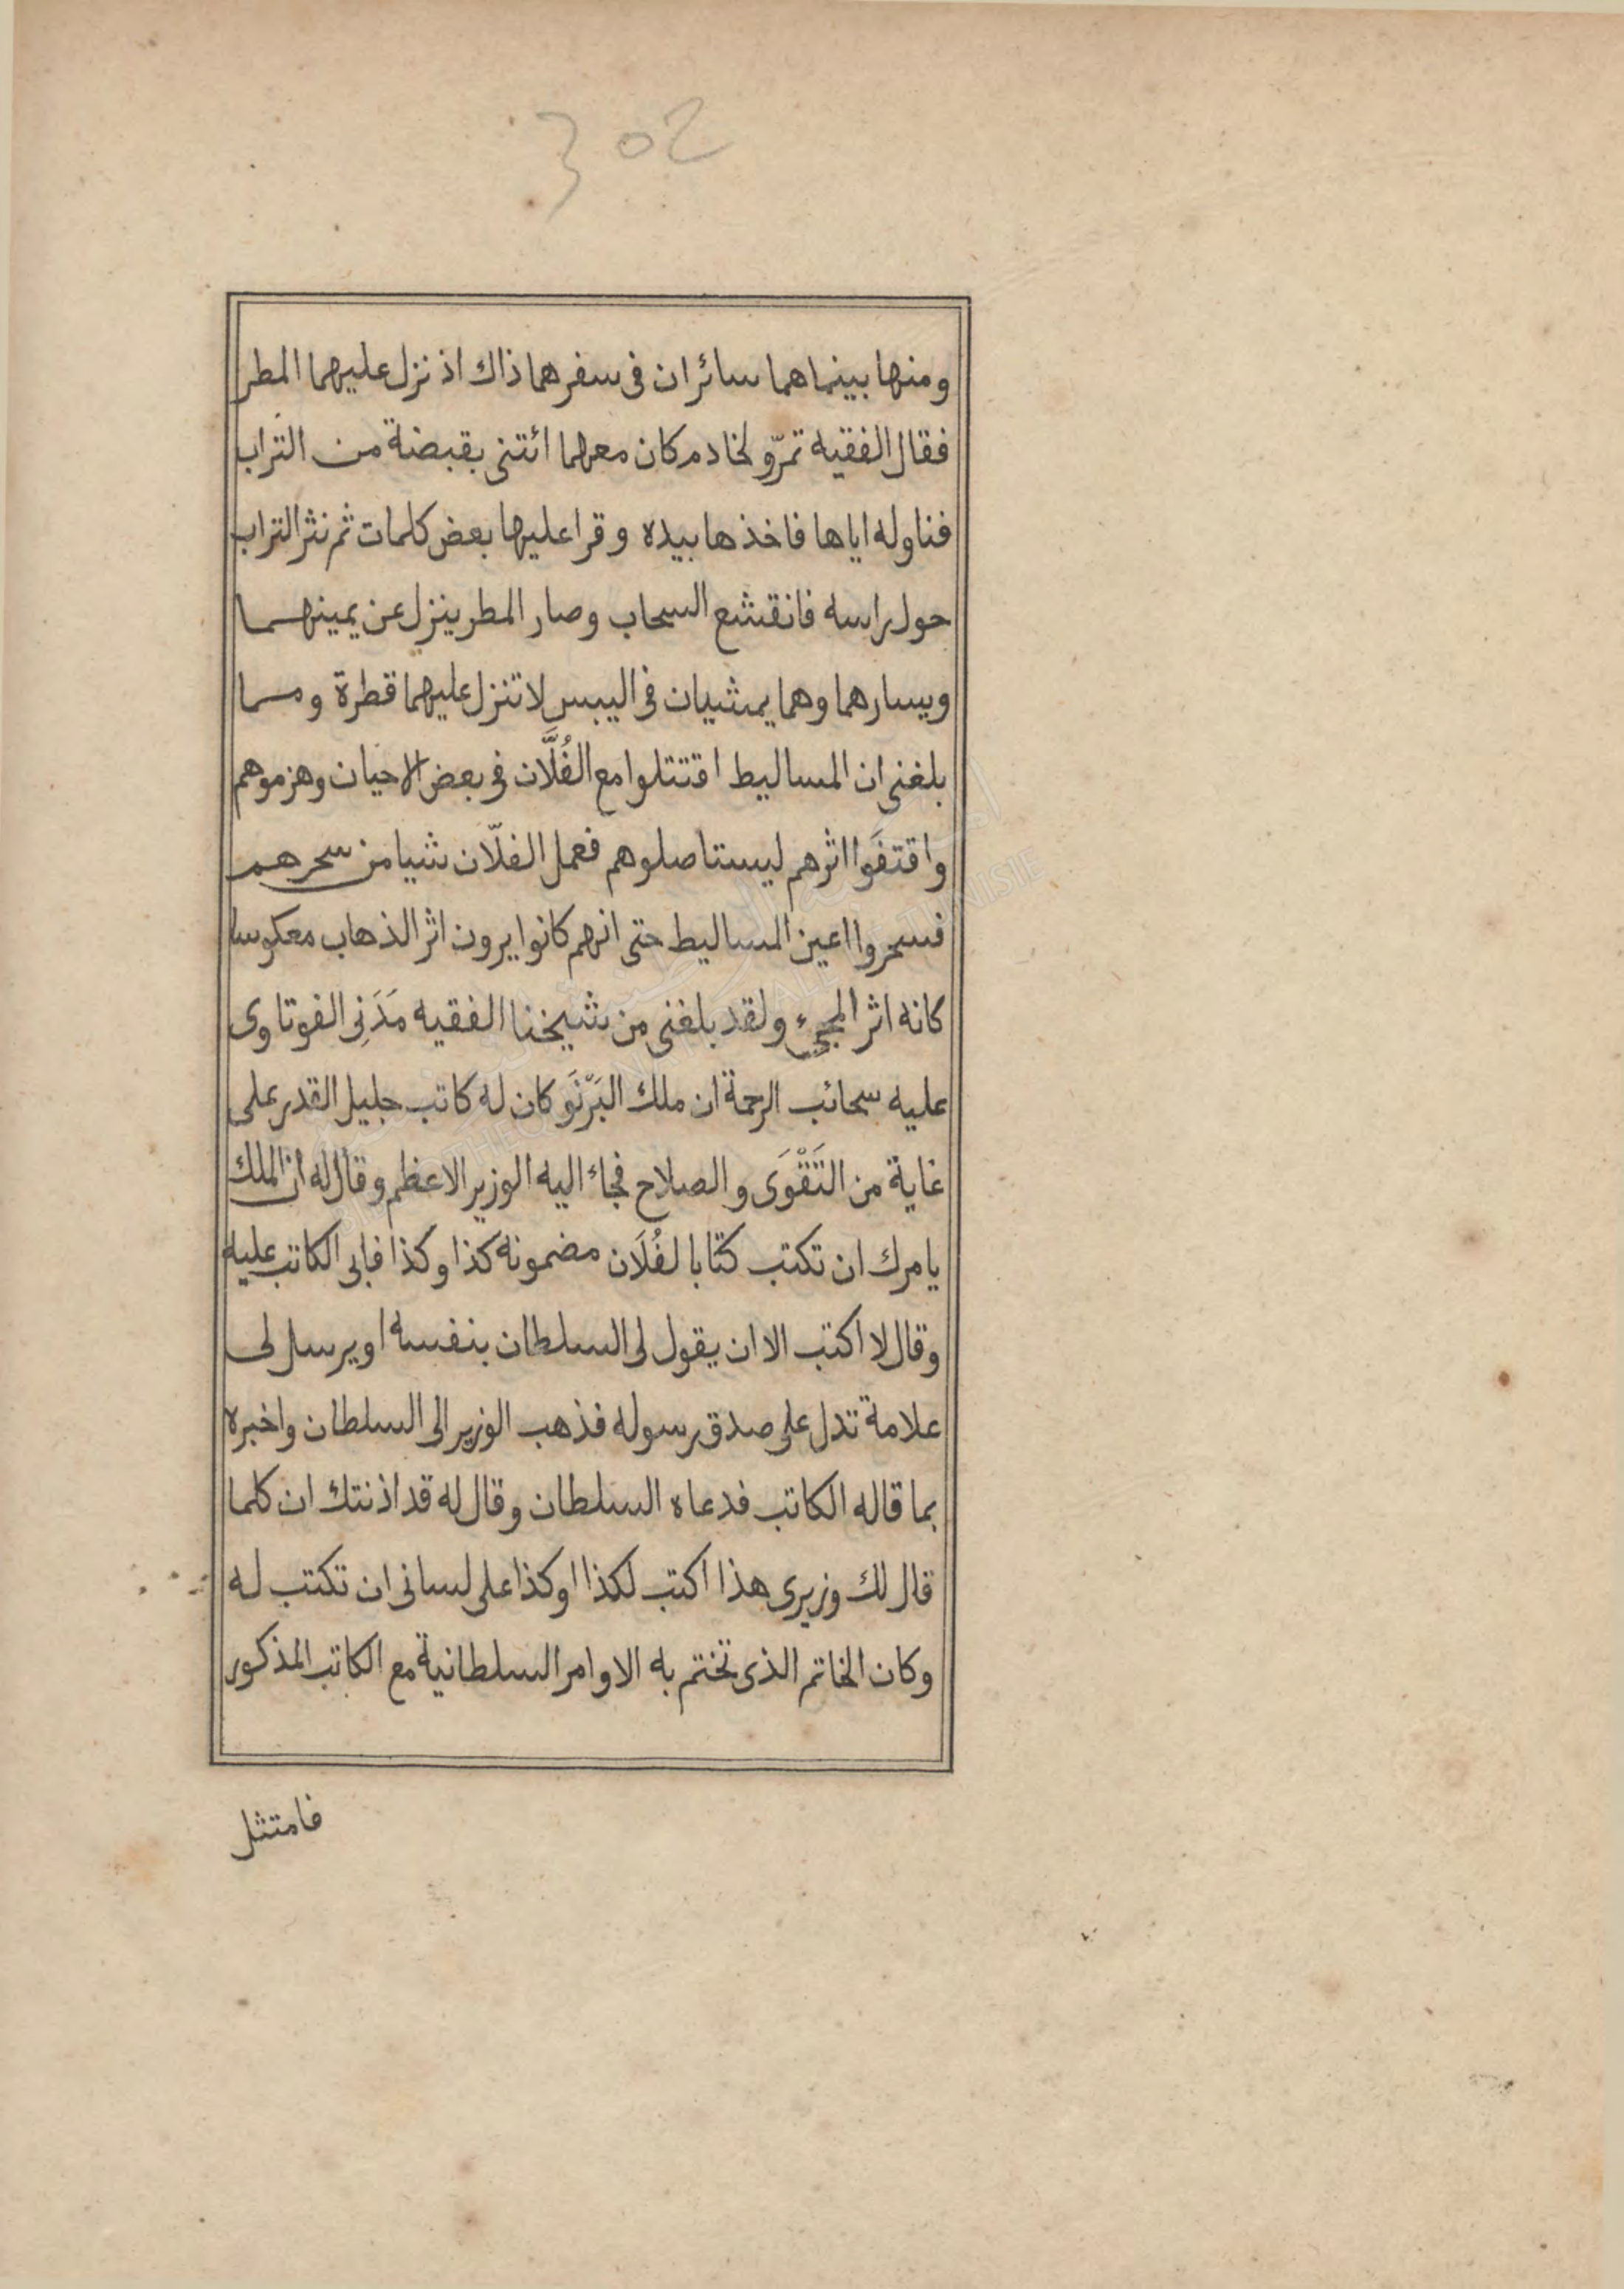 302
ومنها بينماهما سائران فى سفرهما ذاك اذ نزل عليهما المطر
فقال الفقيه تمرّو لخادم كان معهما ائتنى بقبضة من التراب
فناوله اياها فاخذها بيده وقرا عليها بعض كلمات ثم نثر التراب
حول راسه فانقشع السحاب وصار المطر ينزل عن يمينهما
ويسارهما وهما يمشيان فى اليبس لا تنزل عليهما قطرة ومما
بلغنى ان المساليط اقتتلوا مع الفُلَّان فى بعض الاحيان وهزموهم
واقتفَوا اثرهم ليستاصلوهم فعمل الفلّان شيا من سحرهم
فسحروا اعين المساليط حتى انهم كانوا يرون اثر الذهاب معكوسا
كانه اثر المجيء ولقد بلغنى من شيخنا الفقيه مَدَنِى الفوتاوى
عليه سحائب الرحمة ان ملك البَرْنَو كان له كاتب جليل القدر على
غاية من التَقْوَى والصلاح فجاء اليه الوزير الاعظم وقال له ان الملك
يامرك ان تكتب كتابا لفُلَان مضمونه كذا وكذا فابى الكاتب عليه
وقال لا اكتب الا ان يقول لى السلطان بنفسه او يرسل لى
علامة تدل على صدق رسوله فذهب الوزير الى السلطان واخبره
بما قاله الكاتب فدعاه السلطان وقال له قد اذنتك ان كلما
قال لك وزيرى هذا اكتب لكذا اوكذا على لسانى ان تكتب له
وكان الخاتم الذى تختم به الاوامر السلطانية مع الكاتب المذكور
فامتثل